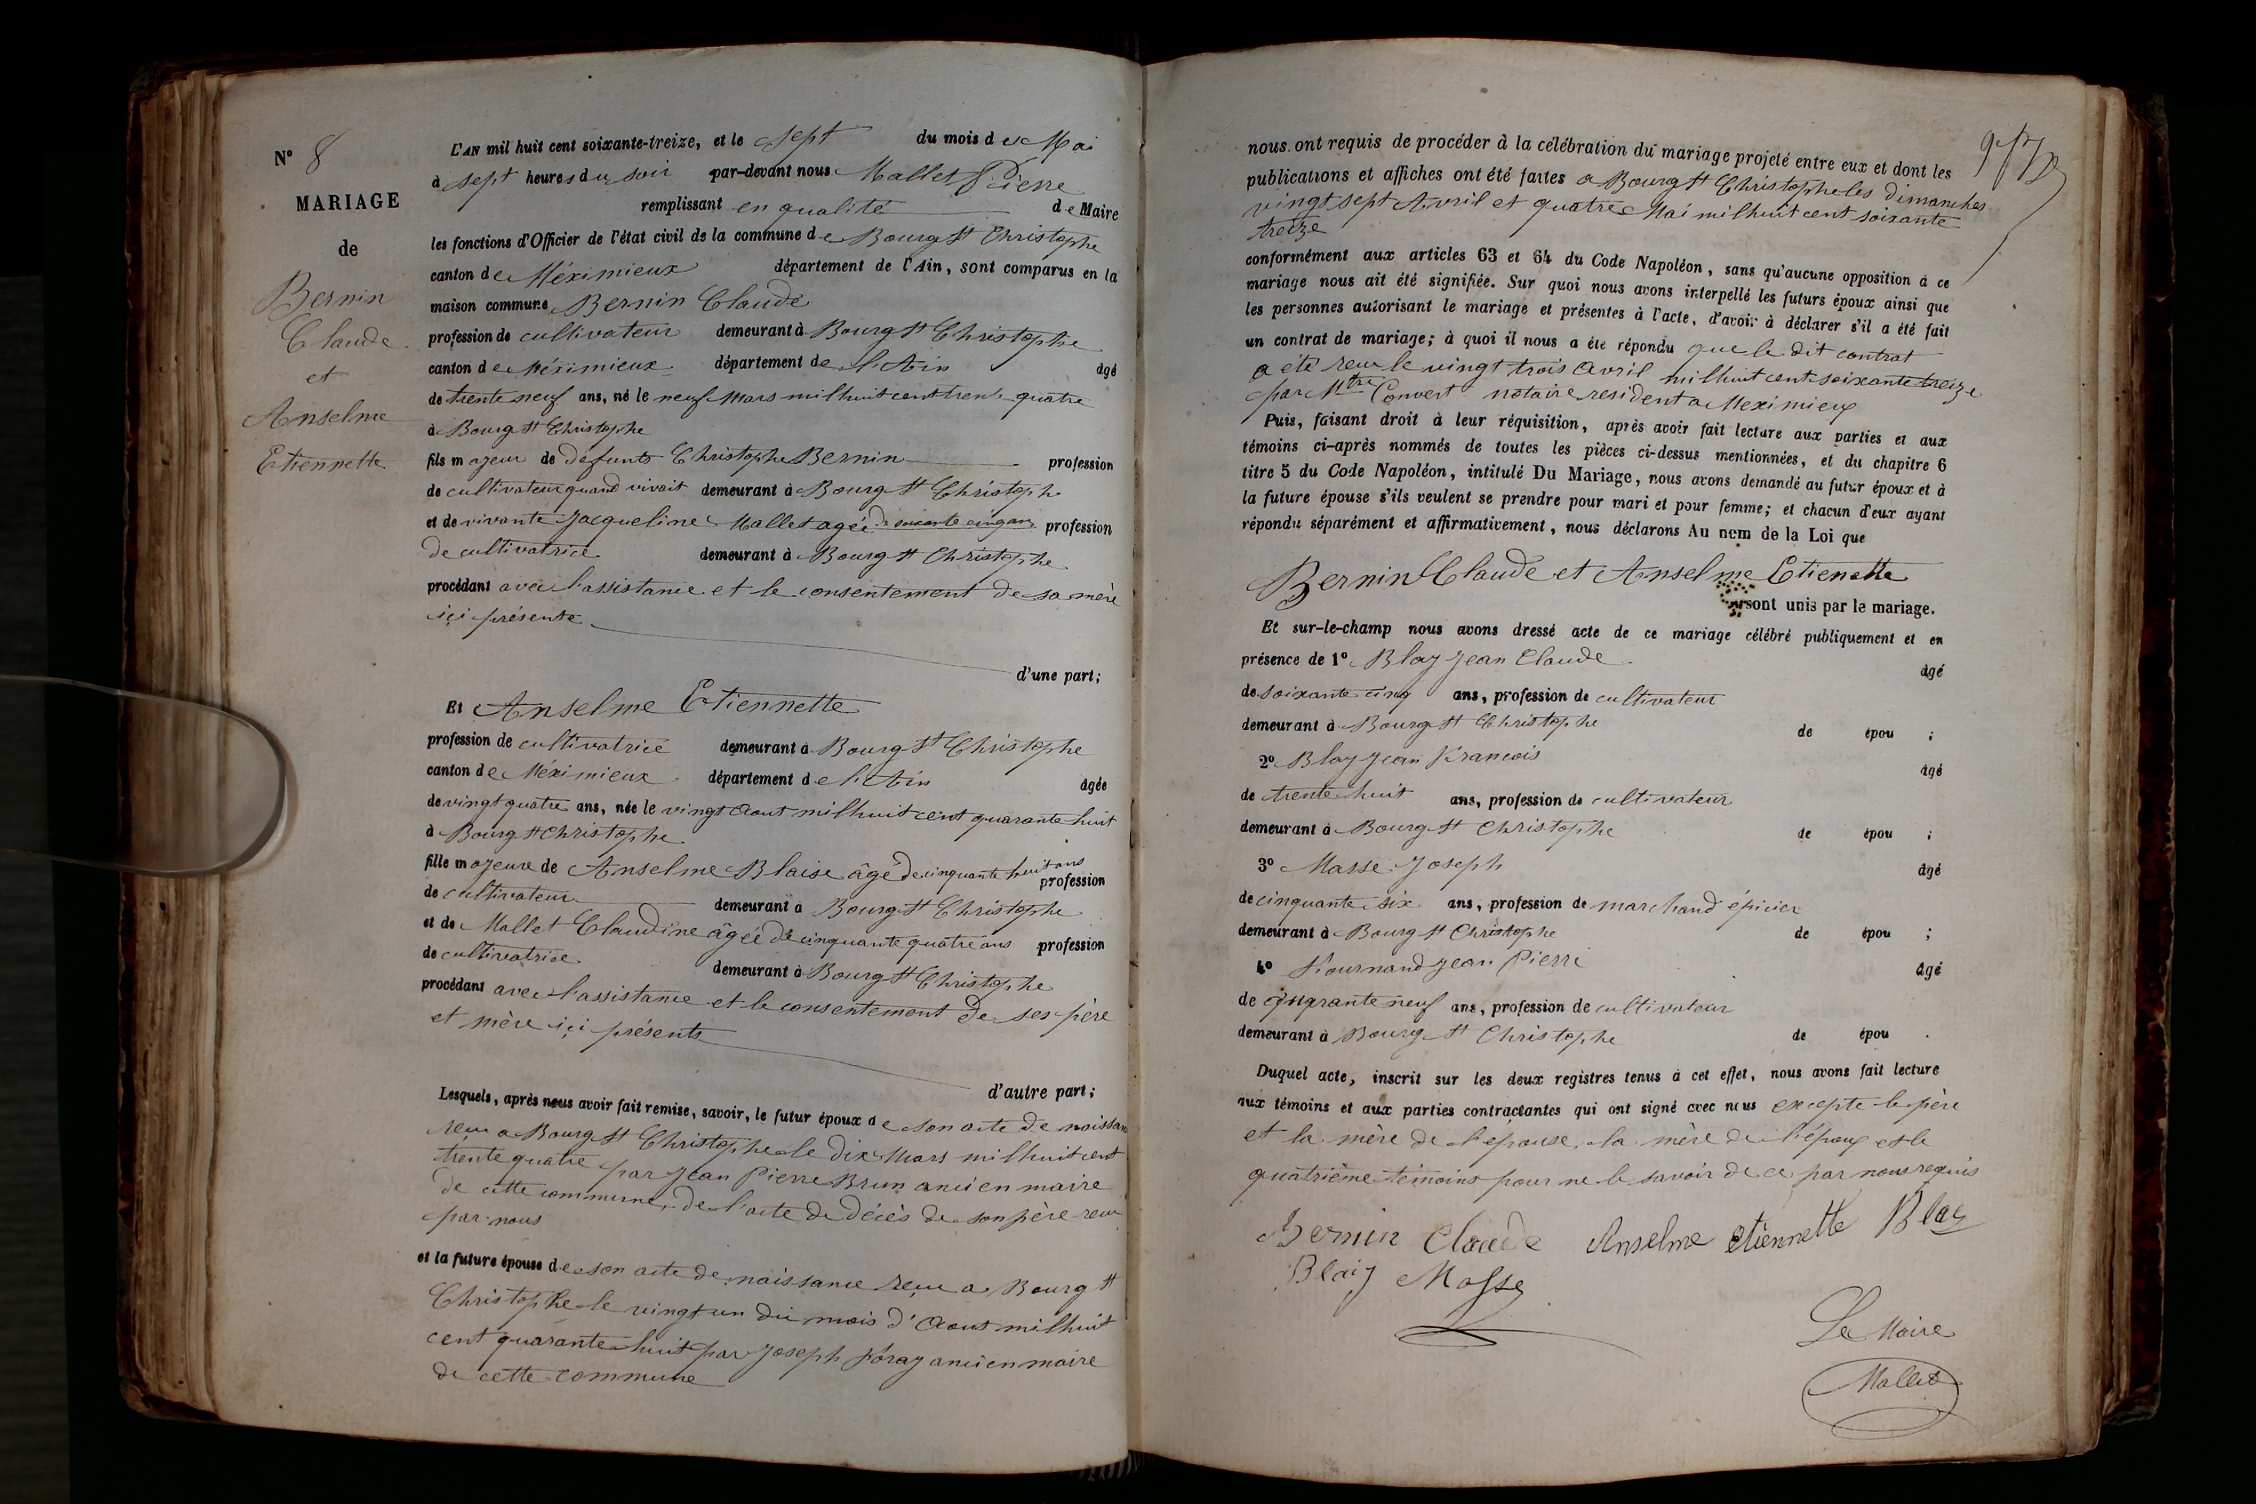 N° 8
MARIAGE
de
Bernin
Claude
et
Anselme
Etiennette
L'AN mil huit cent soixante-treize, et le sept du mois de Mai
à sept heures du soir par-devant nous Mallet Pierre
remplissant en qualité de Maire
les fonctions d'Officier de l'état civil de la commune de Bourg St Christophe
canton de Méximieux département de l'Ain, sont comparus en la
maison commune Bernin Claude
profession de cultivateur demeurant à Bourg St Christophe
canton de Méximieux département de l'Ain âgé
de trente neuf ans, né le neuf Mars mil huit cent trente quatre
à Bourg St Christophe
fils majeur de defunts Christophe Bernin profession
de cultivateur quand vivait demeurant à Bourg St Christophe
et de vivante Jacqueline Mallet agée de soixante cinq ans profession
de cultivatrice demeurant à Bourg St Christophe
procédant avec l'assistance et le consentement de sa mère
içi présente
d'une part;
Et Anselme Etiennette
profession de cultivatrice demeurant à Bourg St Christophe
canton de Méximieux département de l'Ain âgée
de vingt quatre ans, née le vingt Aout mil huit cent quarante huit
à Bourg St Christophe
fille majeure de Anselme Blaise âgé de cinquante huit ans profession
de cultivateur demeurant à Bourg St Christophe
et de Mallet Claudine âgée de cinquante quatre ans profession
de cultivatrice demeurant à Bourg St Christophe
procédant avec l'assistance et le consentement de ses père
et mère içi présents
d'autre part;
Lesquels, après nous avoir fait remise, savoir, le futur époux de son acte de naissan
reçu a Bourg St Christophe le dix Mars mil huit cent
trente quatre par Jean Pierre Brun ancien maire
de cette commune, de l'acte de décès de son père reçu
par nous
et la future épouse de son acte de naissance reçu a Bourg St
Christophe le vingt un du mois d'Aout mil huit
cent quarante huit par Joseph Foray ancien maire
de cette commune
nous ont requis de procéder à la célébration du mariage projeté entre eux et dont les
publications et affiches ont été faites a Bourg St Christophe les dimanches
vingt sept Avril et quatre Mai mil huit cent soixante
treize
conformément aux articles 63 et 64 du Code Napoléon, sans qu'aucune opposition à ce
mariage nous ait été signifiée. Sur quoi nous avons interpellé les futurs époux ainsi que
les personnes autorisant le mariage et présentes à l'acte, d'avoir à déclarer s'il a été fait
un contrat de mariage; à quoi il nous a été répondu que le dit contrat
a été reçu le vingt trois Avril mil huit cent soixante treize
par Mtre Convert notaire resident a Meximieux
Puis, faisant droit à leur réquisition, après avoir fait lecture aux parties et aux
témoins ci-après nommés de toutes les pièces ci-dessus mentionnées, et du chapitre 6
titre 5 du Code Napoléon, intitulé Du Mariage, nous avons demandé au futur époux et à
la future épouse s'ils veulent se prendre pour mari et pour femme; et chacun d'eux ayant
répondu séparément et affirmativement, nous déclarons Au nom de la Loi que
Bernin Claude et Anselme Etienette
sont unis par le mariage.
Et sur-le-champ nous avons dressé acte de ce mariage célébré publiquement et en
présence de 1° Blay Jean Claude âgé
de soixante cinq ans, profession de cultivateur
demeurant à Bourg St Christophe de épou ;
2° Blay Jean Francois âgé
de trente huit ans, profession de cultivateur
demeurant à Bourg St Christophe de épou ;
3° Masse Joseph âgé
de cinquante six ans, profession de marchand épicier
demeurant à Bourg St Christophe de épou ;
4° Fournand Jean Pierre âgé
de quarante neuf ans, profession de cultivateur
demeurant à Bourg St Christophe de épou .
Duquel acte, inscrit sur les deux registres tenus à cet effet, nous avons fait lecture
aux témoins et aux parties contractantes qui ont signé avec nous excepte le père
et la mère de l'epouse, la mère de l'époux et le
quatrième témoins pour ne le savoir de ce par nous requis
Bernin Claude Anselme etiennette Blay
Blay Masse
Le Maire
Mallet